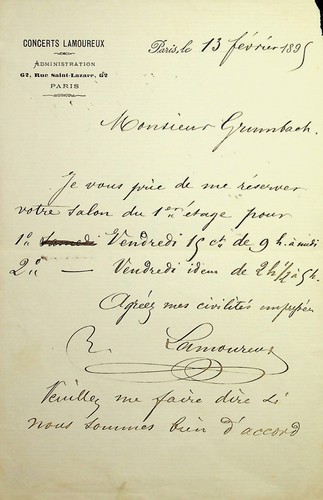 CONCERTS LAMOUREUX
ADMINISTRATION
62, Rue Saint-Lazare, 62
PARIS
Paris, le 13 février 1895
Monsieur Grumbach.
Je vous prie de me réserver
votre salon du 1er étage pour
1o Samedi Vendredi 15 ct de 9h à midi
2o — Vendredi idem de 2h 1/2 à 5h.
Agréez mes civilités empressées
Lamoureux
Veuillez me faire dire si
nous sommes bien d'accord